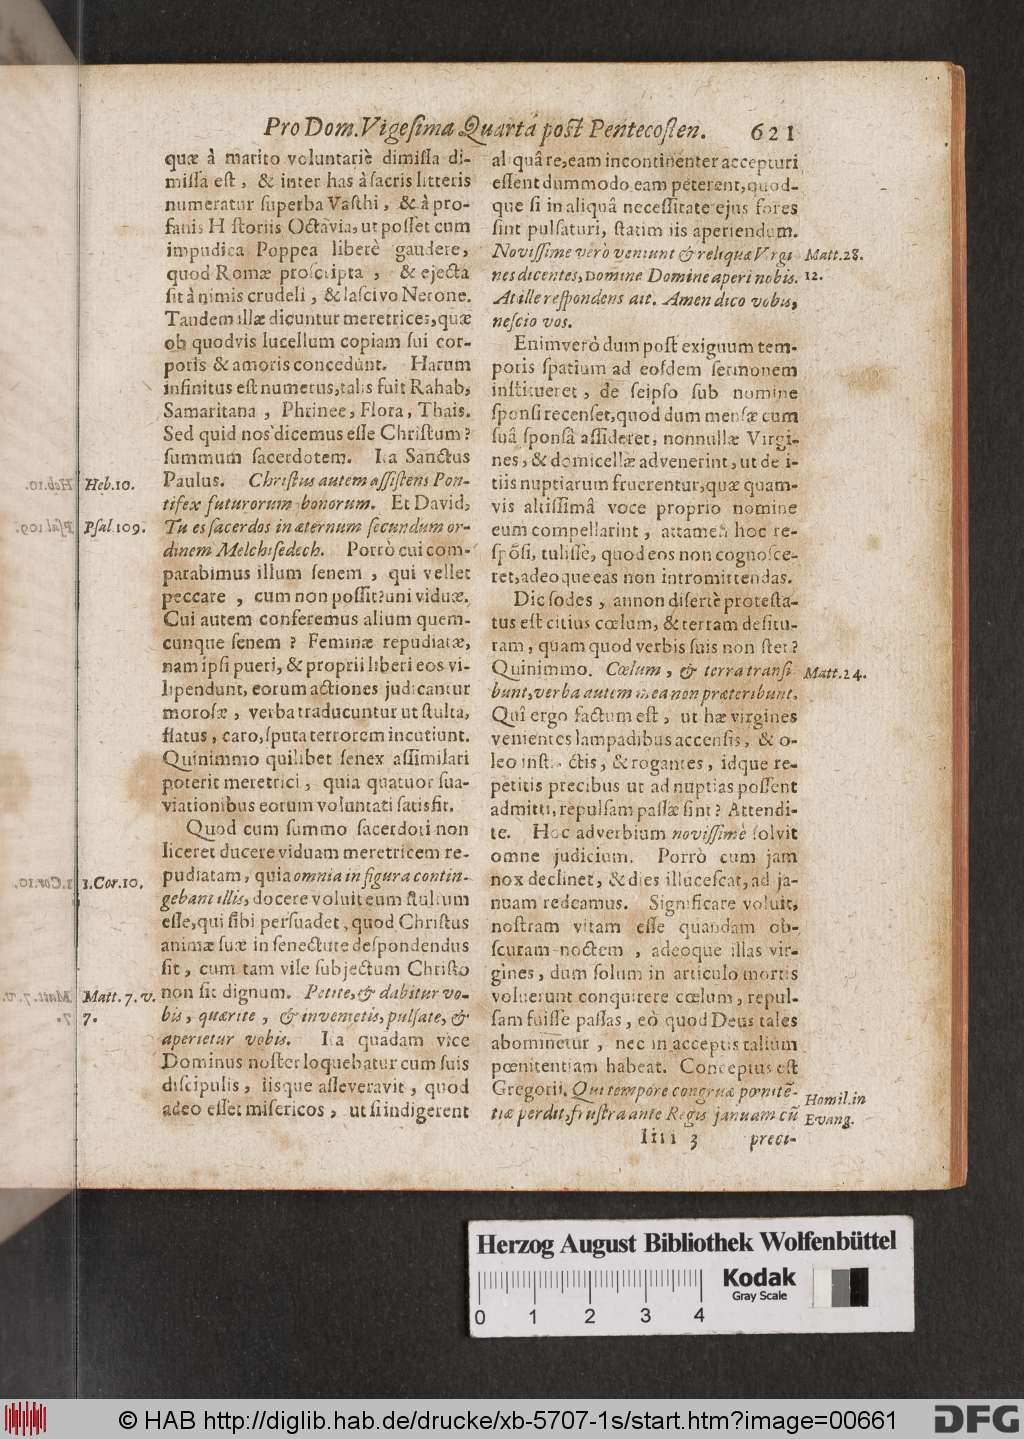 Pro Dom. Vigesima Quartâ post Pentecosten. 621
quæ à marito voluntariè dimissa di-
missa est, & inter has à sacris litteris
numeratur superba Vasthi, & à pro-
fanis H storiis Octavia, ut posset cum
impudica Poppea liberè gaudere,
quod Romæ proscripta, & ejecta
sit à nimis crudeli, & lascivo Nerone.
Tandem illæ dicuntur meretrices, quæ
ob quodvis lucellum copiam sui cor-
poris & amoris concedunt. Harum
infinitus est numerus, talis fuit Rahab,
Samaritana, Phrinee, Flora, Thais.
Sed quid nos dicemus esse Christum?
summum sacerdotem. Ita Sanctus
Paulus. Christus autem assistens Pon-
tifex futurorum bonorum. Et David,
Tu es sacerdos in æternum secundum or-
dinem Melchisedech. Porrò cui com-
parabimus illum senem, qui vellet
peccare, cum non possit? uni viduæ.
Cui autem conferemus alium quem-
cunque senem? Feminæ repudiatæ,
nam ipsi pueri, & proprii liberi eos vi-
lipendunt, eorum actiones judicantur
morosæ, verba traducuntur ut stulta,
flatus, caro, sputa terrorem incutiunt.
Quinimmo quilibet senex assimilari
poterit meretrici, quia quatuor sua-
viationibus eorum voluntati satis fit.
Quod cum summo sacerdoti non
liceret ducere viduam meretricem re-
pudiatam, quia omnia in figura contin-
gebant illis, docere voluit eum stultum
esse, qui sibi persuadet, quod Christus
animæ suæ in senectute despondendus
sit, cum tam vile subjectum Christo
non sit dignum. Petite, & dabitur vo-
bis, quærite, & invenietis, pulsate, &
aperietur vobis. Ita quadam vice
Dominus noster loquebatur cum suis
discipulis, iisque asseveravit, quod
adeo esset misericos, ut si indigerent
Heb. 10.
Psal 109.
1. Cor. 10.
Matt. 7. v.
7.
aliquâ re, eam incontinenter accepturi
essent dummodo eam peterent, quod-
que si in aliquâ necessitate ejus fores
sint pulsaturi, statim iis aperiendum.
Novissime verò veniunt & reliquæ Virgi
nes dicentes, Domine Domine aperi nobis.
At ille respondens ait. Amen dico vobis,
nescio vos.
Enimverò dum post exiguum tem-
poris spatium ad eosdem sermonem
institueret, de seipso sub nomine
sponsi recenset, quod dum mensæ cum
suâ sponsâ assideret, nonnullæ Virgi-
nes, & domicellæ advenerint, ut de i-
tiis nuptiarum fruerentur, quæ quam-
vis altissimâ voce proprio nomine
eum compellarint, attamen hoc re-
spõsi, tulisse, quod eos non cognosce-
ret, adeoque eas non intromittendas.
Dic sodes, annon disertè protesta-
tus est citius cœlum, & terram desitu-
ram, quam quod verbis suis non stet?
Quinimmo. Cœlum, & terra transi
bunt, verba autem mea non præteribunt.
Quî ergo factum est, ut hæ virgines
venientes lampadibus accensis, & o-
leo inst ctis, & rogantes, idque re-
petitis precibus ut ad nuptias possent
admitti, repulsam passæ sint? Attendi-
te. Hoc adverbium novissimè solvit
omne judicium. Porrò cum jam
nox declinet, & dies illucescat, ad ja-
nuam redeamus. Significare voluit,
nostram vitam esse quandam ob-
scuram noctem, adeoque illas vir-
gines, dum solum in articulo mortis
voluerunt conquirere cœlum, repul-
sam fuisse passas, eò quod Deus tales
abominetur, nec in acceptis talium
pœnitentiam habeat. Conceptus est
Gregorii. Qui tempore congruæ pœnitẽ-
tiæ perdit, frustra ante Regis januam cũ
Iiii 3 preci-
Matt. 28.
12.
Matt. 24.
Homil. in
Evang.
Herzog August Bibliothek Wolfenbüttel
Kodak
Gray Scale
0 1 2 3 4
© HAB http://diglib.hab.de/drucke/xb-5707-1s/start.htm?image=00661
DFG